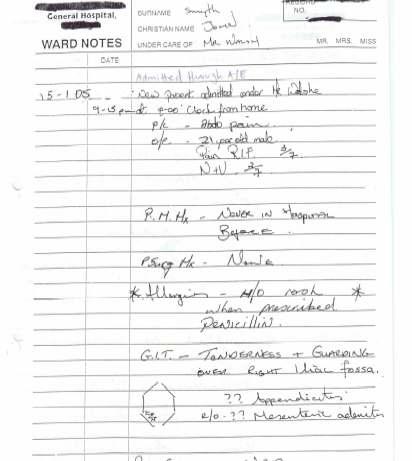 General Hospital,
SURNAME Smyth
CHRISTIAN NAME James
UNDER CARE OF Mr
NO.
WARD NOTES
MR. MRS. MISS
DATE
Admitted through A/E
15-1-05 New patient admitted under Mr Walshe
9-15 pm 9-00' Clock from home
P/c - Abdo pain.
O/e - 21 year old male
Pain R.I.F. 3/7
N+V 2/7
P.M.Hx - Never in Hospital
Before.
P Surg Hx - None
* Allergies - H/O rash *
when prescribed
Penicillin.
G.I.T. - Tenderness + Guarding
over Right Iliac fossa.
?? Appendicitis
R/O - ?? Mesenteric adenitis